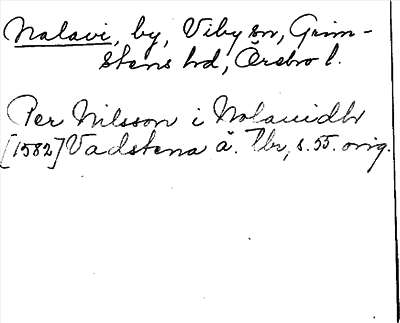 Nalavi, by, Viby sn, Grim-
stens hd, Örebro l.
Per Nilsson i Nolauidh
[1582] Vadstena ä. Tbr, s. 55. orig.